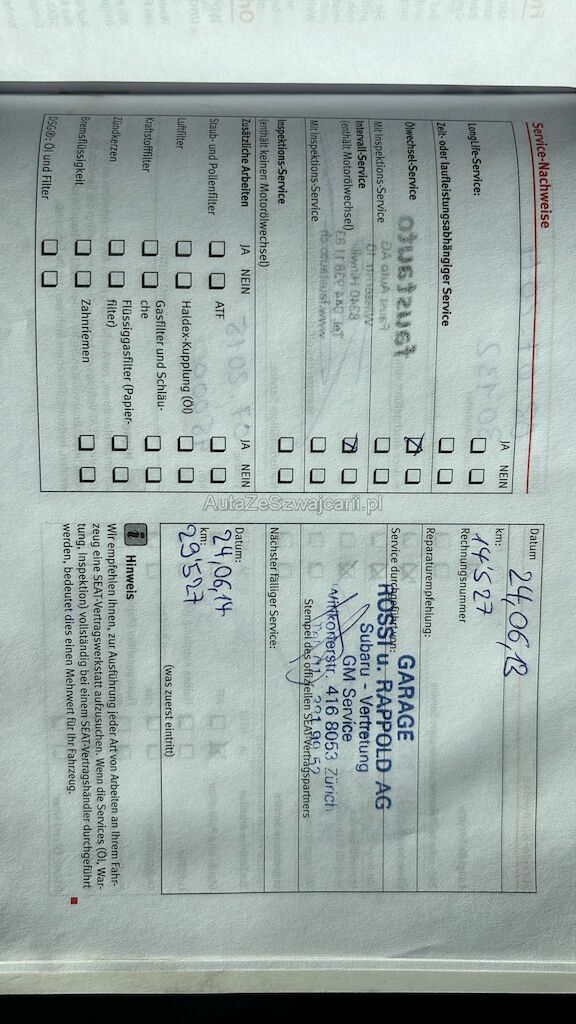 Service-Nachweise
JA NEIN
LongLife-Service:
Zeit- oder laufleistungsabhängiger Service
Ölwechsel-Service
Mit Inspektions-Service
Intervall-Service
(enthält Motorölwechsel)
Mit Inspektions-Service
Inspektions-Service
(enthält keinen Motorölwechsel)
Zusätzliche Arbeiten JA NEIN JA NEIN
Staub- und Pollenfilter ATF
Luftfilter Haldex-Kupplung (Öl)
Kraftstofffilter Gasfilter und Schläu-
che
Zündkerzen Flüssiggasfilter (Papier-
filter)
Bremsflüssigkeit Zahnriemen
DSG®; Öl und Filter
Datum 24,06,13
km: 14'527
Rechnungsnummer
Reparaturempfehlung:
Service durchgeführt von:
GARAGE
ROSSI u. RAPPOLD AG
Subaru - Vertretung
GM Service
Witikonerstr. 416 8053 Zürich
Stempel des offiziellen SEAT-Vertragspartners
Nächster fälliger Service:
Datum: 24,06,14
km: 29527
(was zuerst eintritt)
i Hinweis
Wir empfehlen Ihnen, zur Ausführung jeder Art von Arbeiten an Ihrem Fahr-
zeug eine SEAT-Vertragswerkstatt aufzusuchen. Wenn die Services (Öl, War-
tung, Inspektion) vollständig bei einem SEAT-Vertragshändler durchgeführt
werden, bedeutet dies einen Mehrwert für Ihr Fahrzeug.
AutaZeSzwajcarii.pl